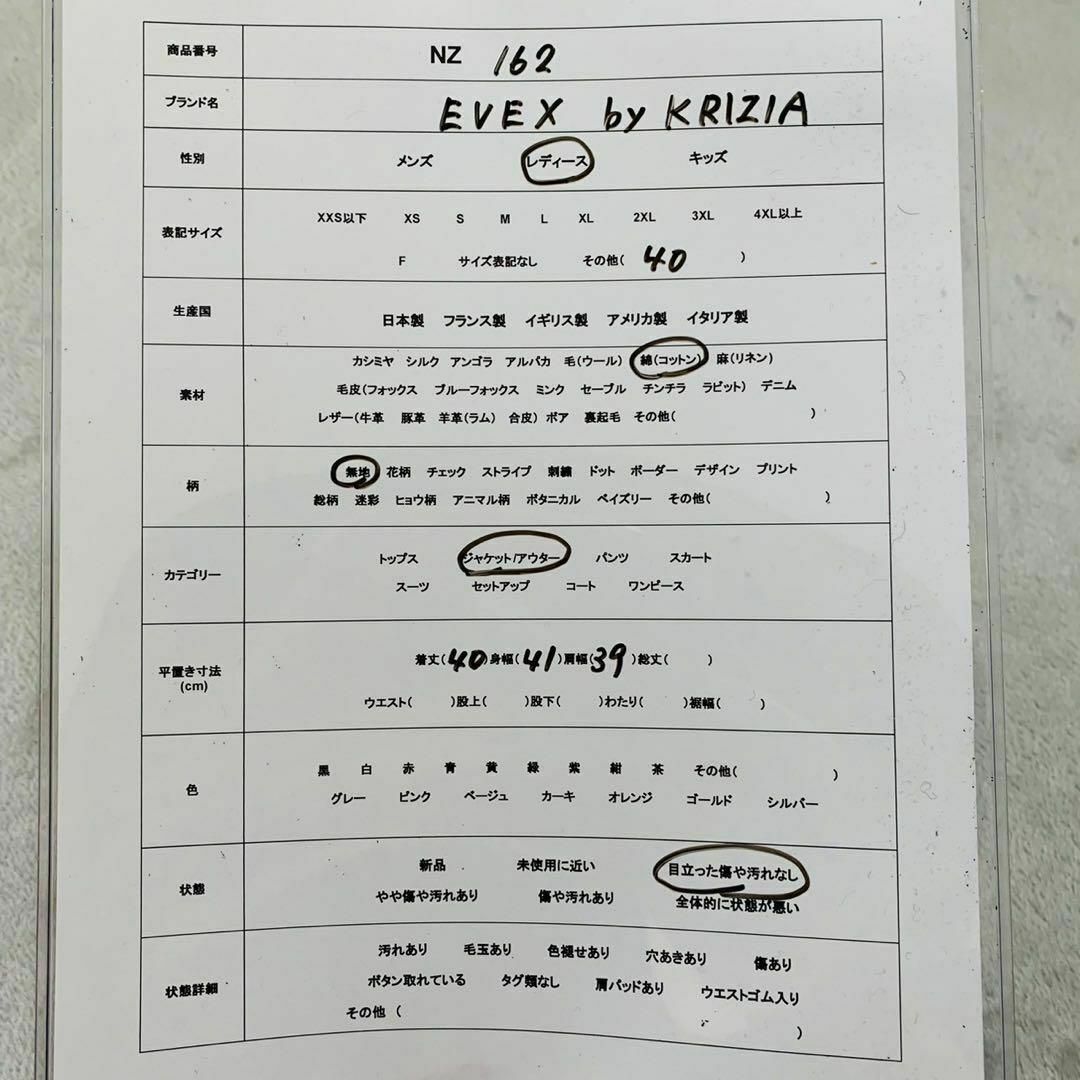 商品番号 NZ 162
ブランド名 EVEX by KRIZIA
性別 メンズ レディース キッズ
表記サイズ
XXS以下 XS S M L XL 2XL 3XL 4XL以上
F サイズ表記なし その他( 40 )
生産国 日本製 フランス製 イギリス製 アメリカ製 イタリア製
素材
カシミヤ シルク アンゴラ アルパカ 毛(ウール) 綿(コットン) 麻(リネン)
毛皮(フォックス ブルーフォックス ミンク セーブル チンチラ ラビット) デニム
レザー(牛革 豚革 羊革(ラム) 合皮) ボア 裏起毛 その他( )
柄
無地 花柄 チェック ストライプ 刺繍 ドット ボーダー デザイン プリント
総柄 迷彩 ヒョウ柄 アニマル柄 ボタニカル ペイズリー その他( )
カテゴリー
トップス ジャケット/アウター パンツ スカート
スーツ セットアップ コート ワンピース
平置き寸法
(cm)
着丈(40)身幅(41)肩幅(39)総丈( )
ウエスト( )股上( )股下( )わたり( )裾幅( )
色
黒 白 赤 青 黄 緑 紫 紺 茶 その他( )
グレー ピンク ベージュ カーキ オレンジ ゴールド シルバー
状態
新品 未使用に近い 目立った傷や汚れなし
やや傷や汚れあり 傷や汚れあり 全体的に状態が悪い
状態詳細
汚れあり 毛玉あり 色褪せあり 穴あきあり 傷あり
ボタン取れている タグ類なし 肩パッドあり ウエストゴム入り
その他 ( )